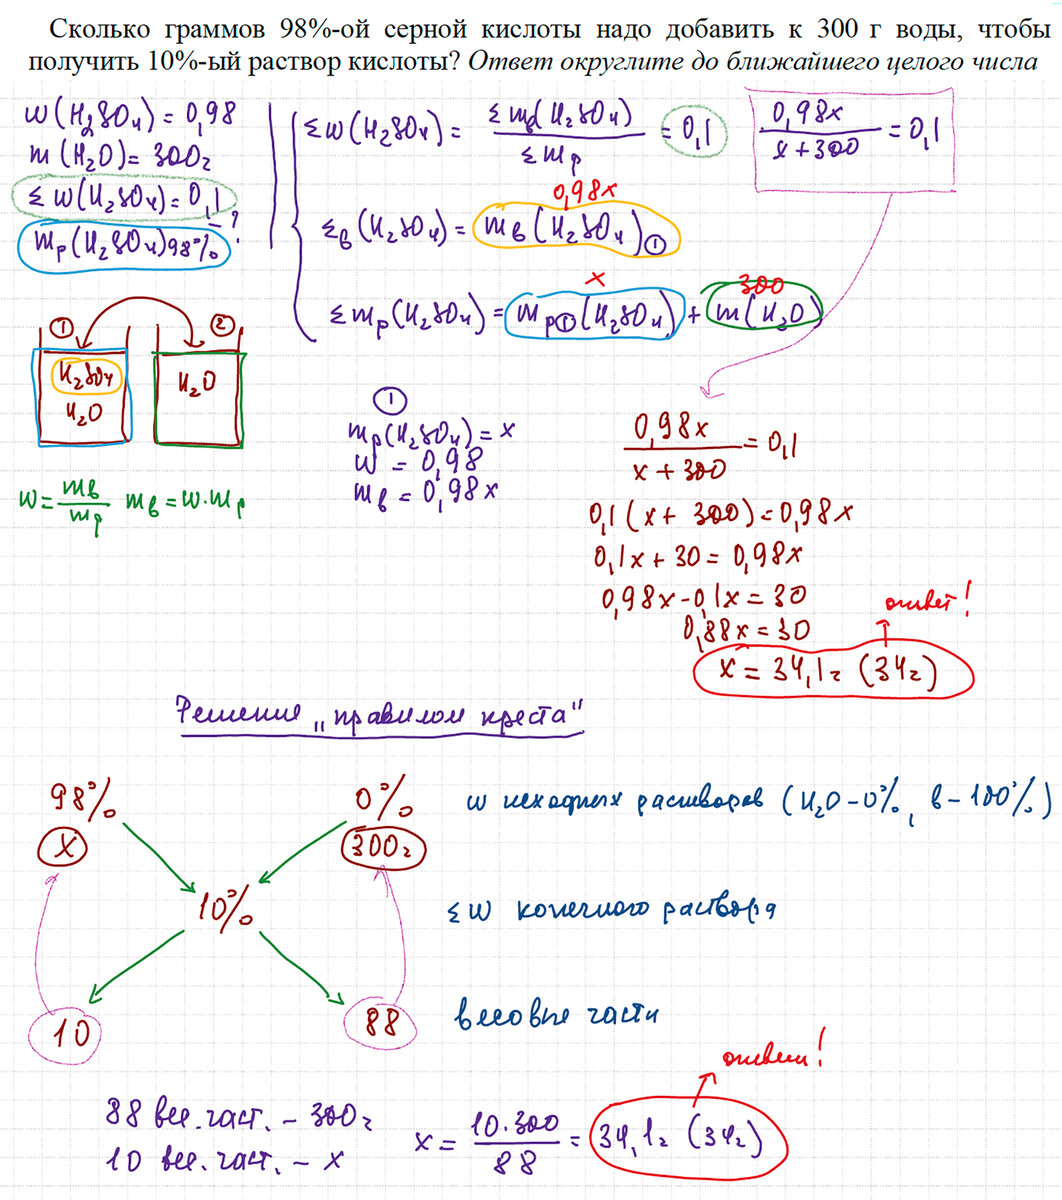 Сколько граммов 98%-ой серной кислоты надо добавить к 300 г воды, чтобы
получить 10%-ый раствор кислоты? Ответ округлите до ближайшего целого числа
w(H₂SO₄) = 0,98
m(H₂O) = 300г
Σw(H₂SO₄) = 0,1
mр(H₂SO₄)98% - ?
Σw(H₂SO₄) = Σmв(H₂SO₄) / Σmр = 0,1
0,98x / x+300 = 0,1
0,98x
Σв(H₂SO₄) = mв(H₂SO₄)①
x 300
Σmр(H₂SO₄) = mр①(H₂SO₄) + m(H₂O)
① ②
H₂SO₄ H₂O
H₂O
w = mв/mр mв = w·mр
①
mр(H₂SO₄) = x
w = 0,98
mв = 0,98x
0,98x / x+300 = 0,1
0,1(x+300) = 0,98x
0,1x+30 = 0,98x
0,98x-0,1x = 30
0,88x = 30
ответ!
x = 34,1г (34г)
Решение "правилом креста"
98% 0% w исходных растворов (H₂O-0%, в-100%)
x 300г
10% Σw конечного раствора
10 88 весовые части
88 вес.част. - 300г
10 вес.част. - x
ответ!
x = 10·300 / 88 = 34,1г (34г)